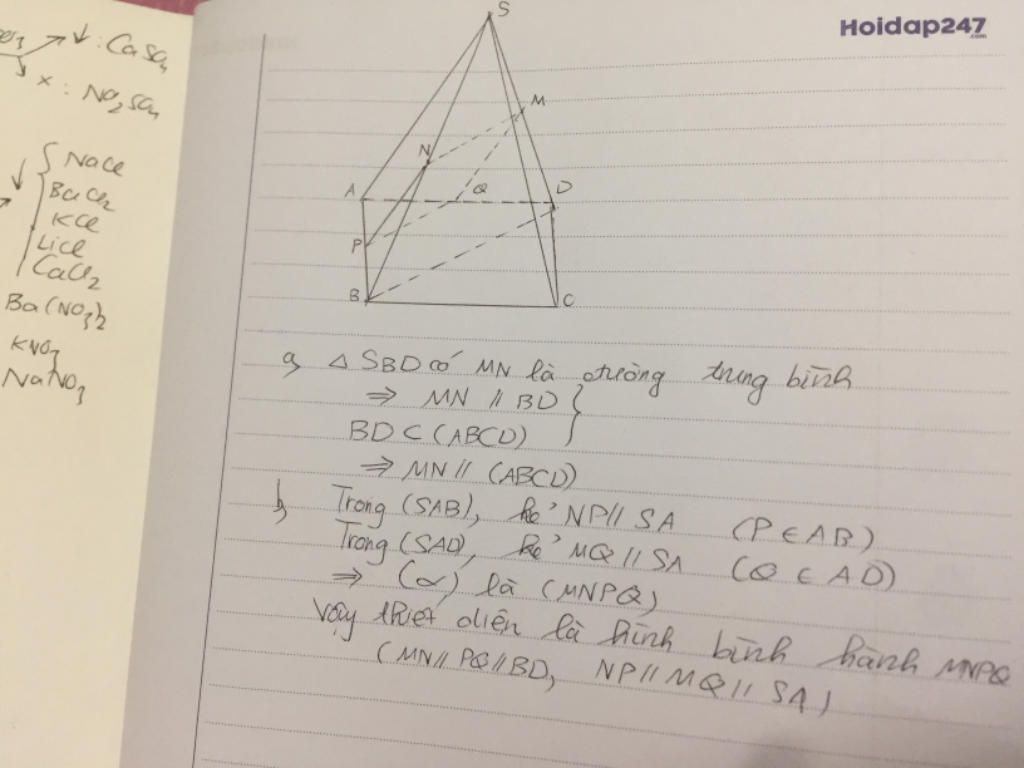 ↓ : CaSO4
x : NO2SO4
↓ { NaCl
BaCl2
KCl
LiCl
CaCl2
Ba(NO3)2
KNO3
NaNO3
Hoidap247
.com
S
M
N
A
Q
D
P
B
C
a, △ SBD có MN là đường trung bình
⇒ MN // BD }
BD ⊂ (ABCD)
⇒ MN // (ABCD)
b, Trong (SAB), kẻ NP // SA (P ∈ AB)
Trong (SAD, kẻ MQ // SA (Q ∈ AD)
⇒ (α) là (MNPQ)
Vậy thiết diện là hình bình hành MNPQ
(MN // PQ // BD, NP // MQ // SA)